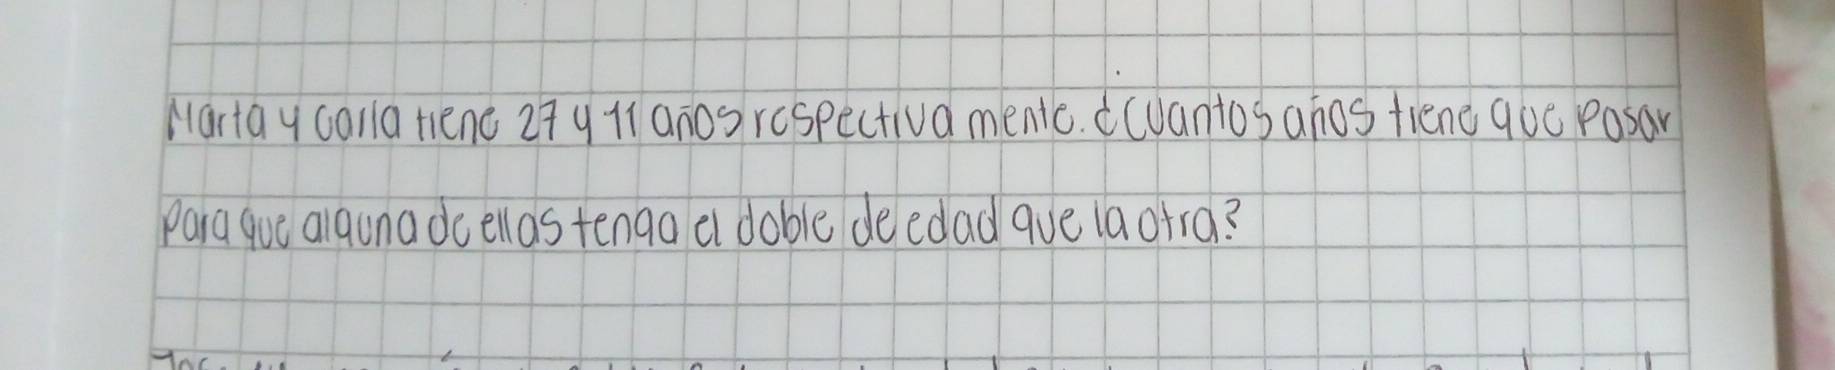 Marta y carla tiene 27 y 11 años respectiva mente. ¿Cuantos años tiene que pasar
para que alguna de ellas tenga el doble de edad que la otra?